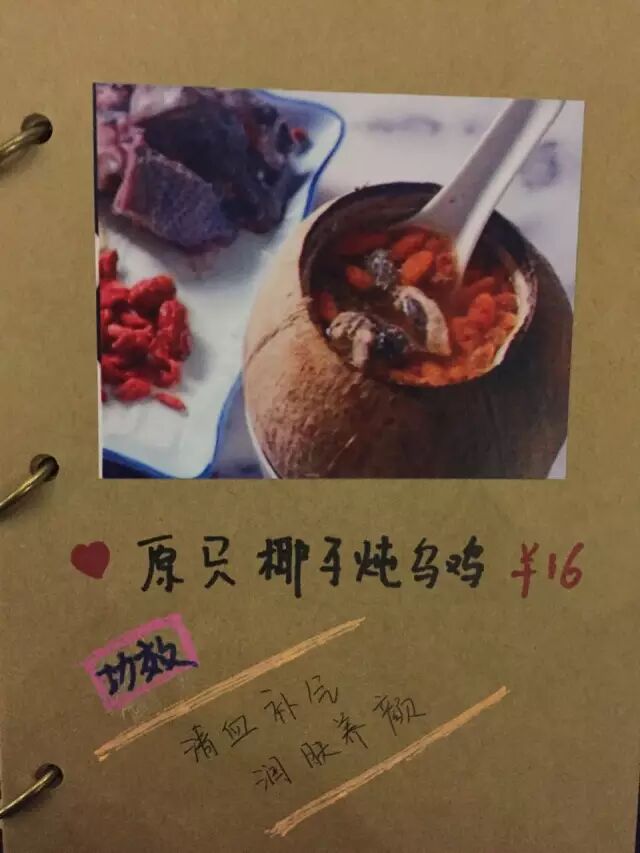 原贝椰子炖乌鸡 ¥16
功效
清血补气
润肤养颜